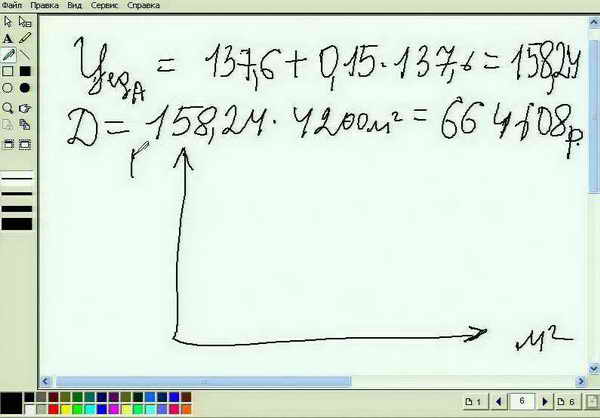 Файл Правка Вид Сервис Справка
Ц ед А = 137,6 + 0,15 · 137,6 = 158,24
Д = 158,24 · 4200 м² = 664 608 р.
м²
1 6 6